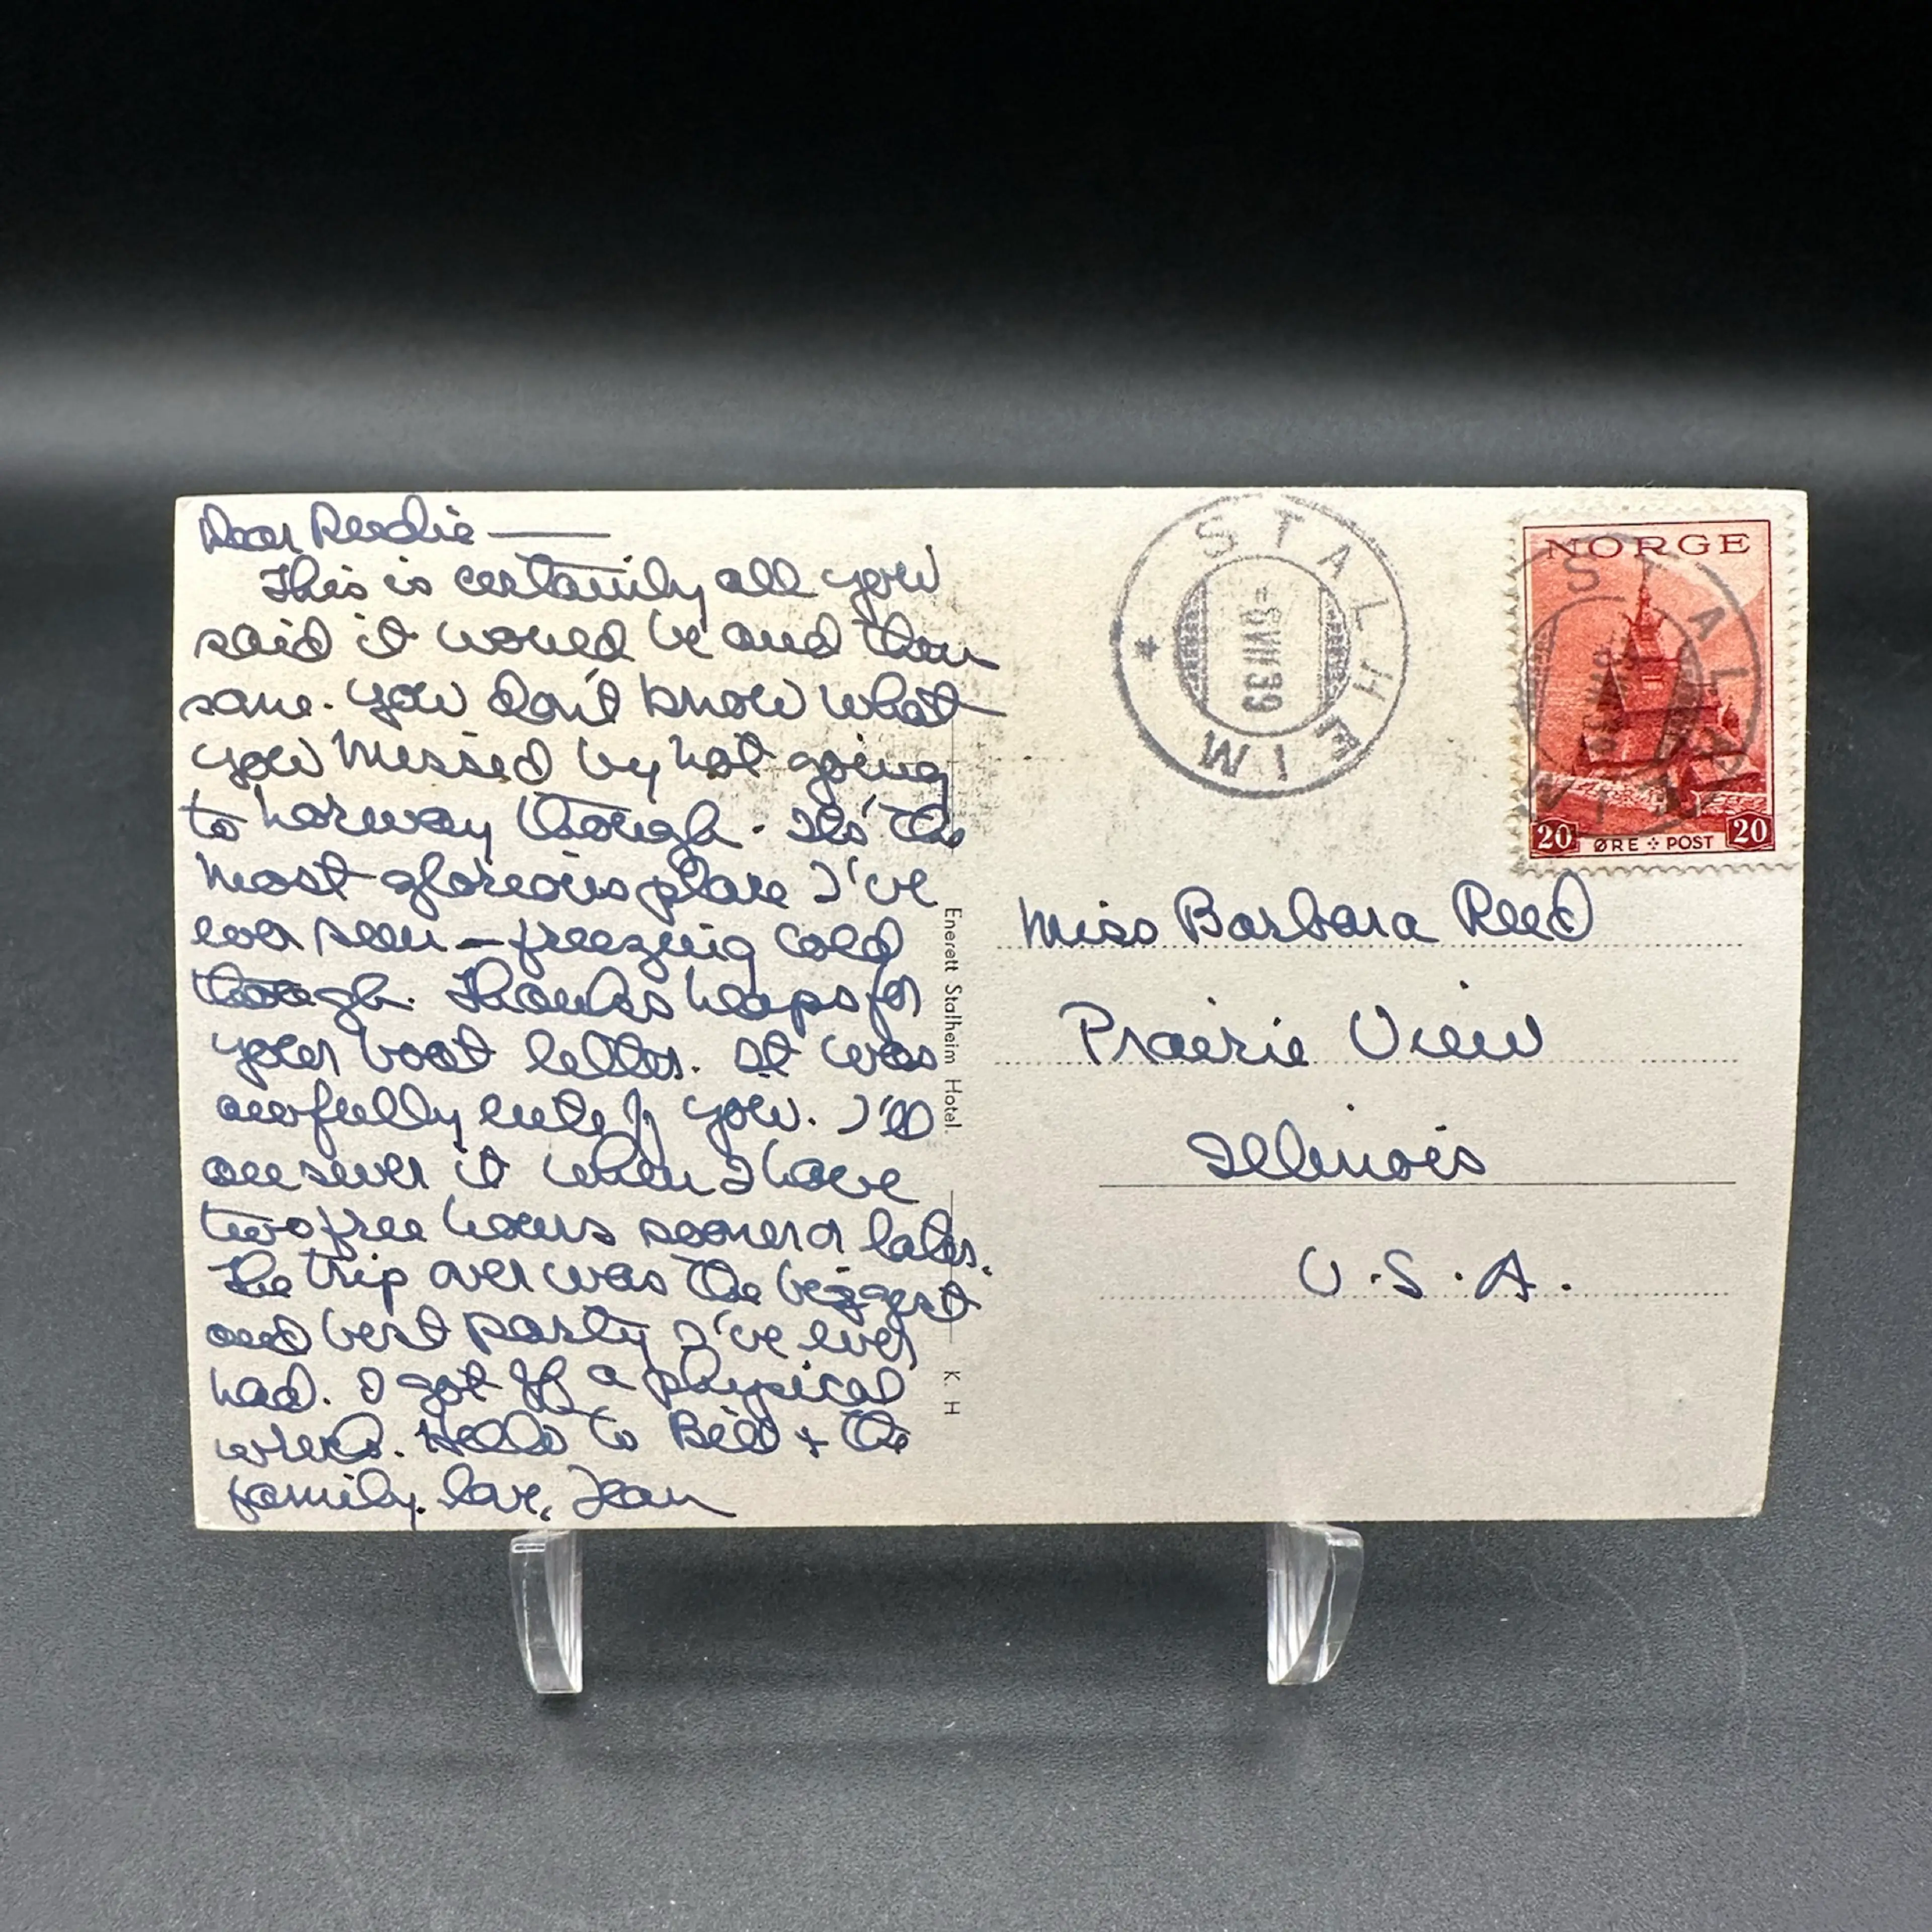 Dear Reedie —
This is certainly all you
said it would be and then
some. You don't know what
you missed by not going
to Norway though. It's the
most glorious place I've
ever seen — freezing cold
though. Thanks heaps for
your boat letter. It was
awfully cute of you. I'll
answer it when I have
two free hours sooner or later.
The trip over was the biggest
and best party I've ever
had. I got off a physical
wreck. Hello to Bill + the
family. Love, Jean
Enerett Stalheim Hotel.
K. H
STALHEIM
-6.VII.39
NORGE
STALHEIM
20 ØRE POST 20
Miss Barbara Reed
Prairie View
Illinois
U.S.A.